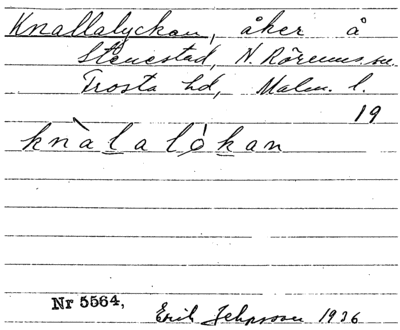 Knallalyckan, åker å
Stenestad, N. Rörums sn.
Frosta hd, Malm. l.
19
knàlalókan
Nr 5564,
Erik Jeppsson 1936